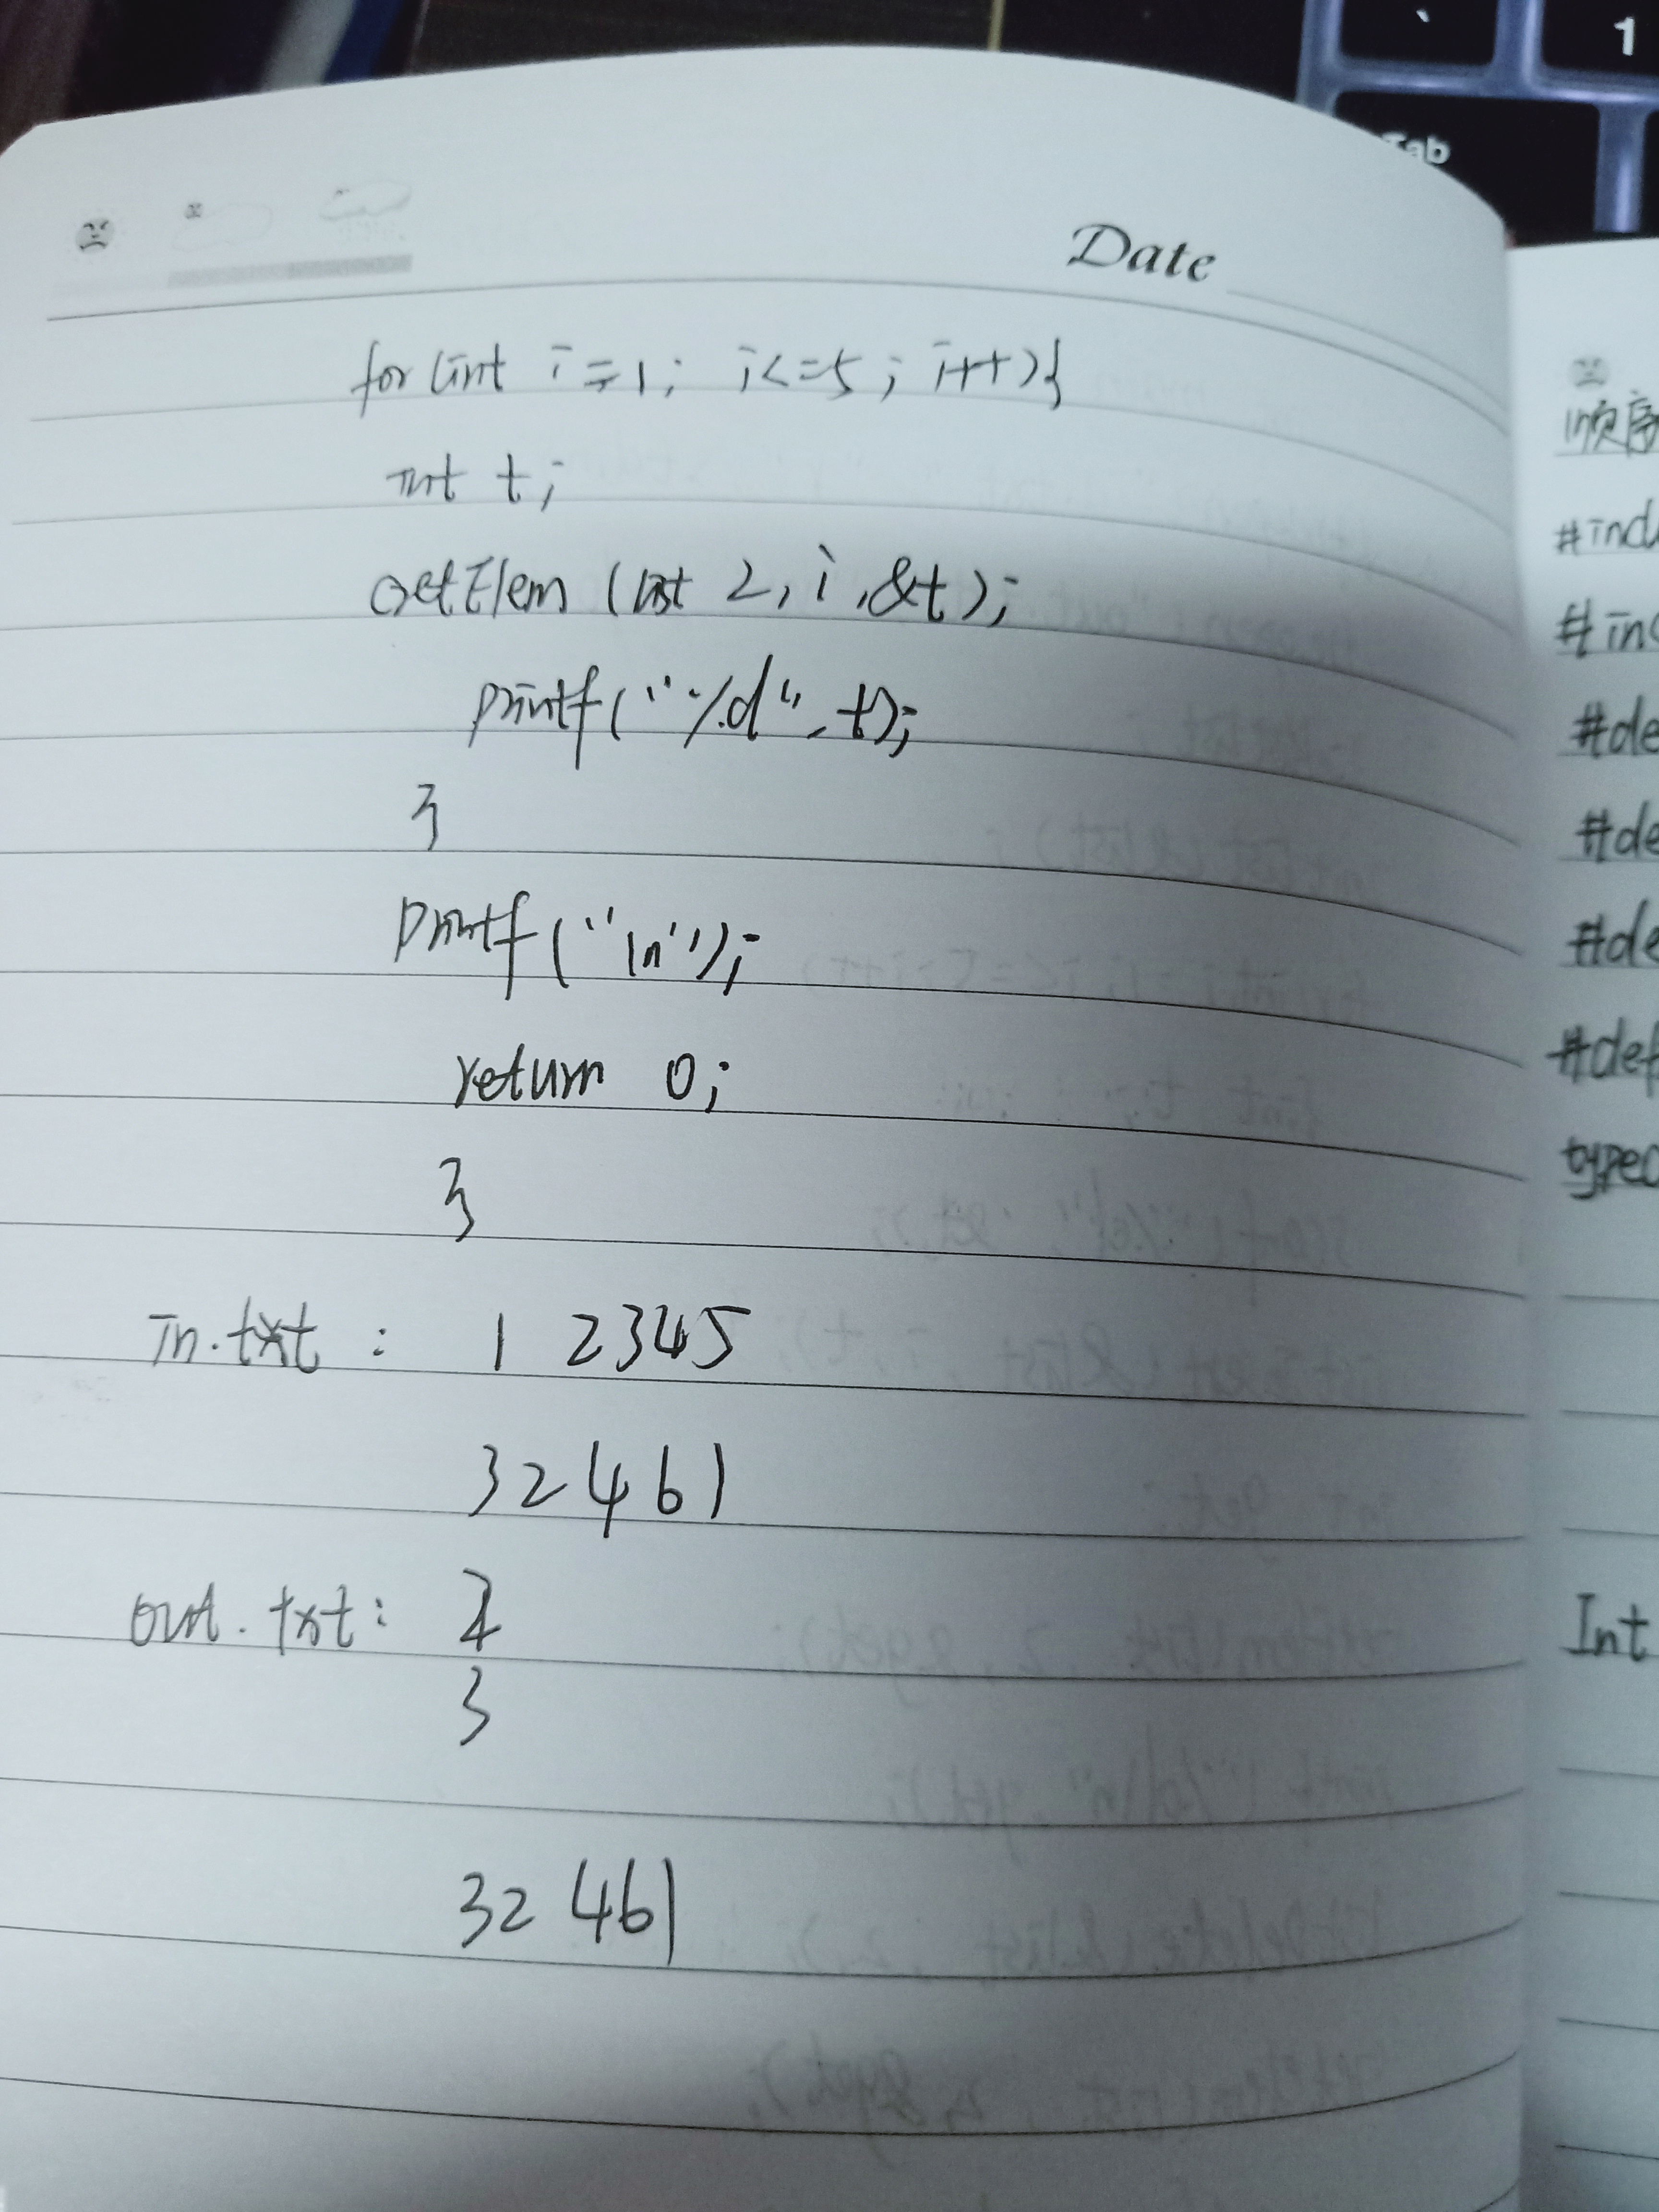 Date
for (int i=1; i<=5; i++){
int t;
GetElem (list 2, i, &t);
printf("%d", t);
}
printf("\n");
return 0;
}
in.txt: 1 2345
32461
out.txt: 2
3
32 461
顺序
#incl
#inc
#de
#de
#de
#def
typed
Int
Tab
1